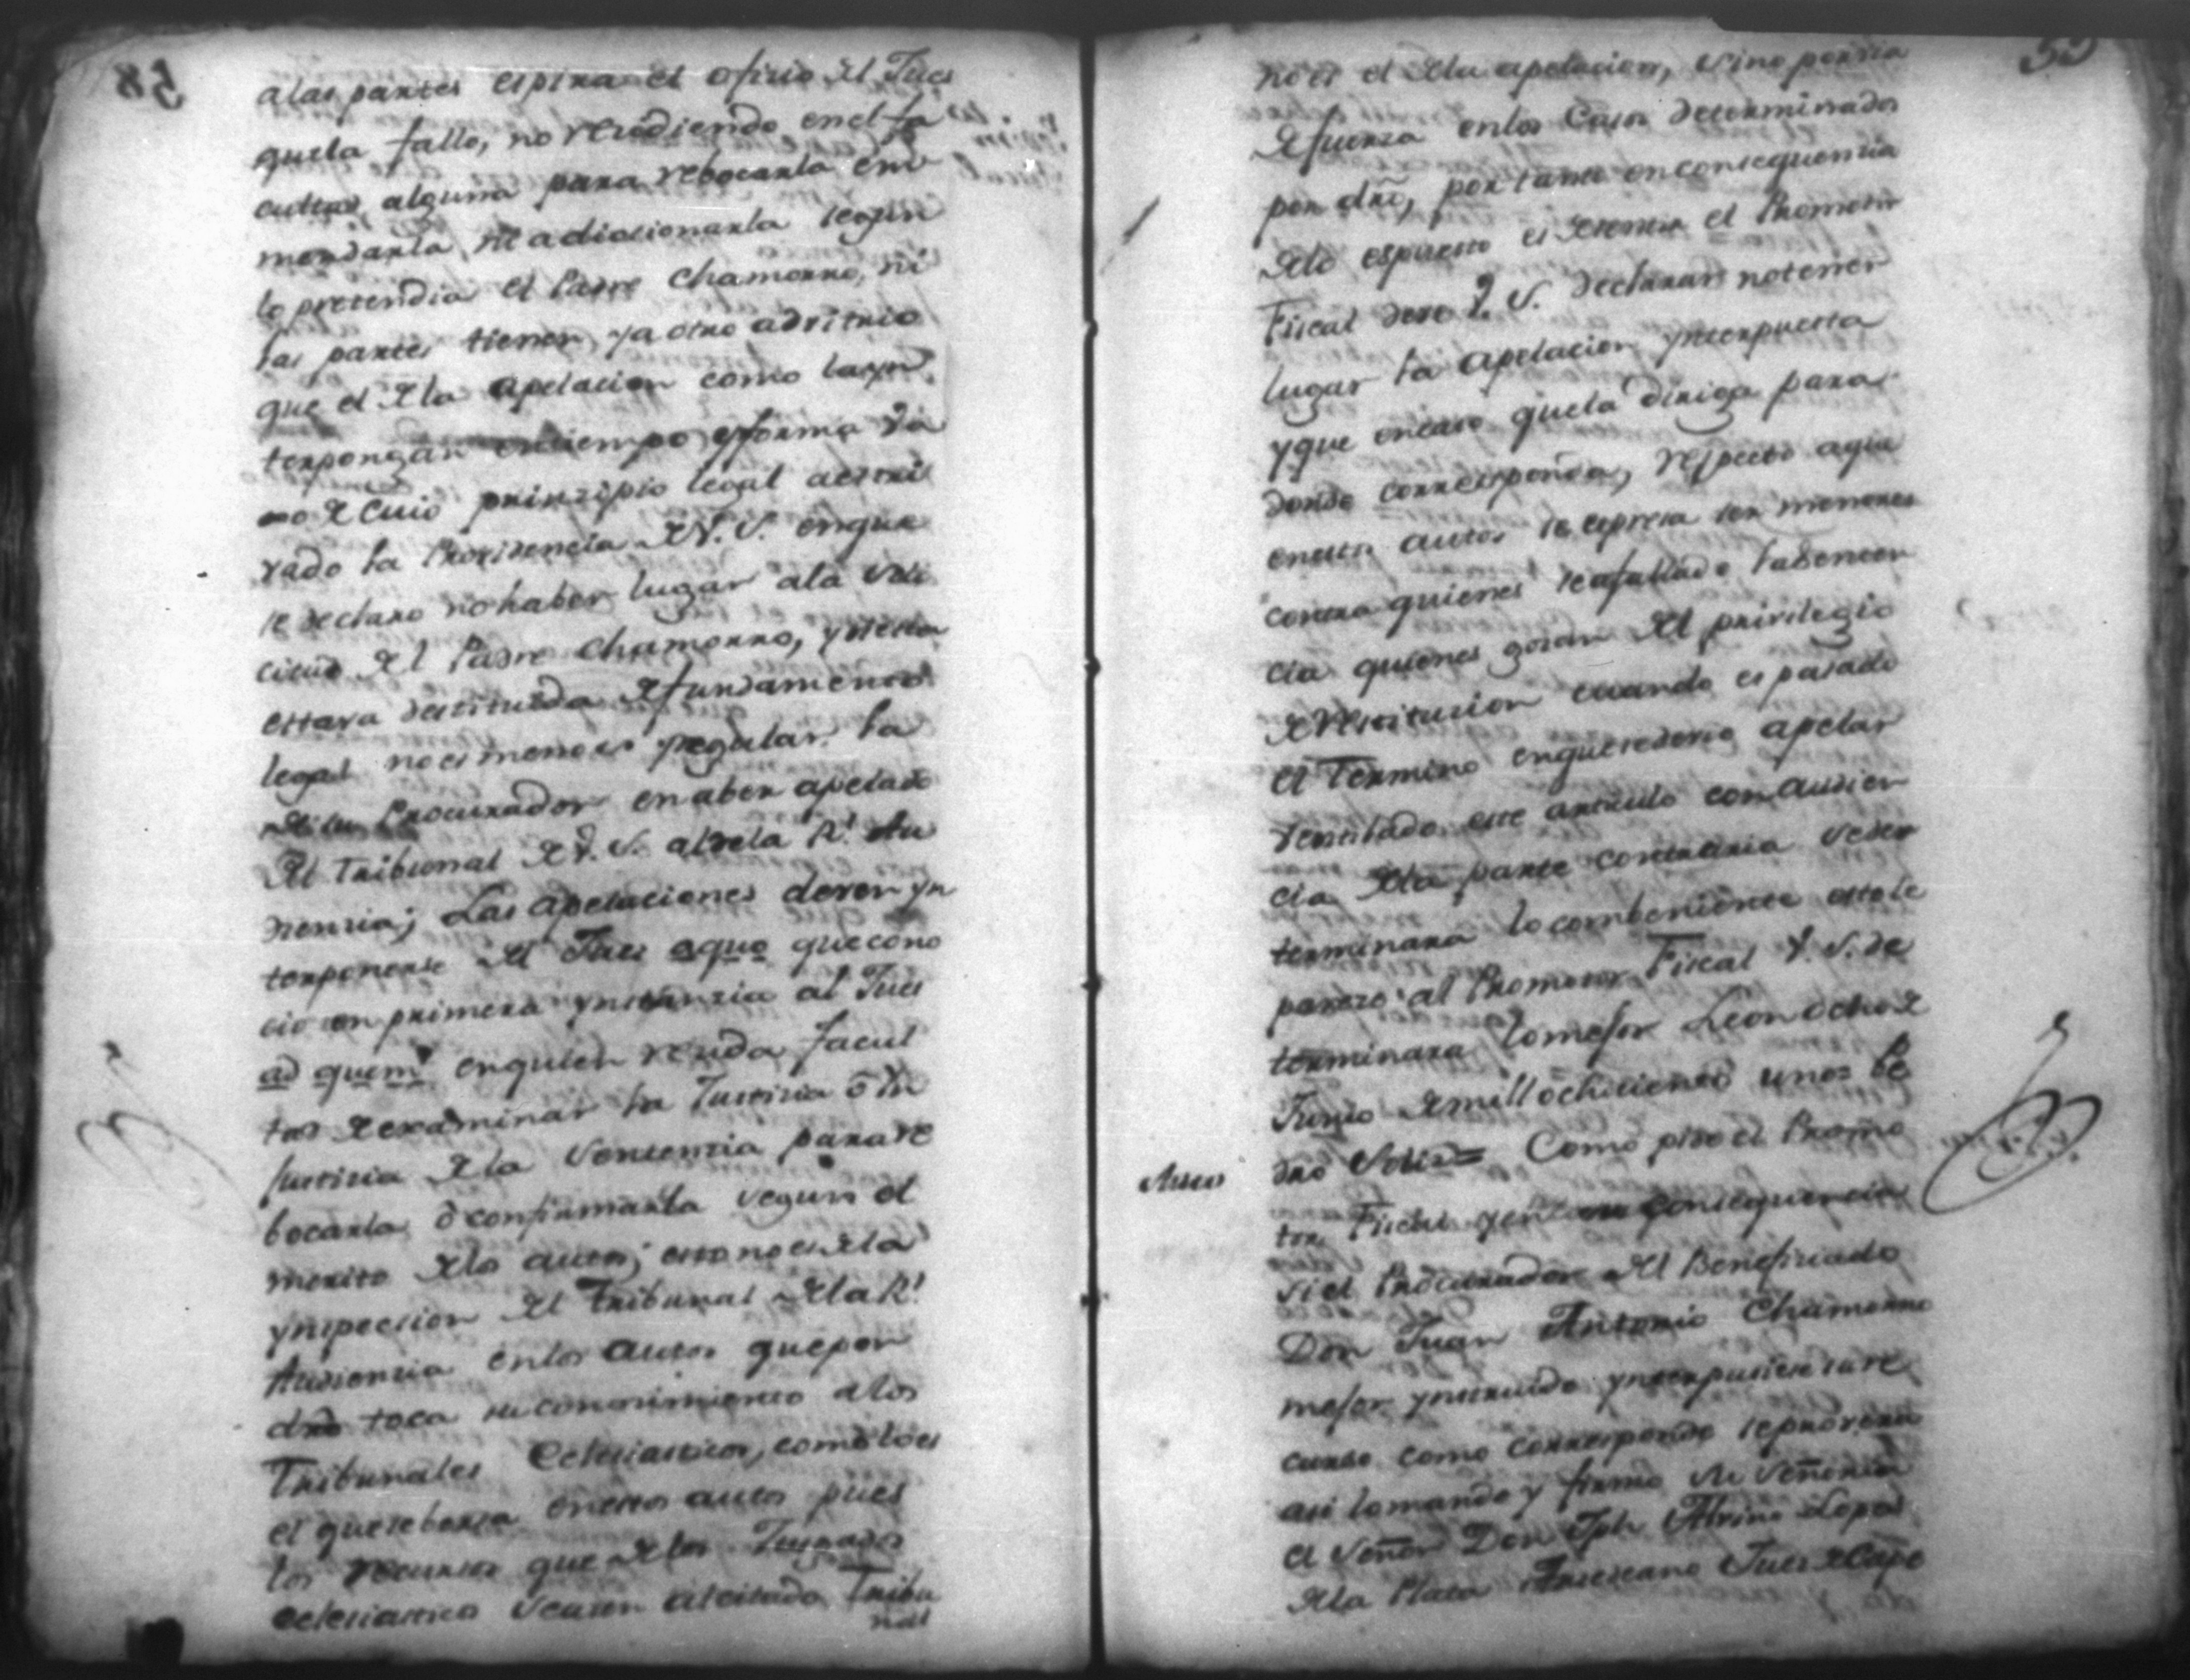 a las partes espira el ofisio del Jues
que la fallo, no residiendo en el fa
cultad alguna para rebocarla en
mendarla, ni adicionarla segun
lo pretendia el Padre Chamorro, ni
las partes tienen ya otro adritrio
que el de la apelacion como la yn
terpongan en tiempo y forma
de cuio prinsipio legal
rado la Providencia de V. S. en que
se declaro no haber lugar a la soli
citud del Padre Chamorro, y si esta
estava destituida de fundamento
legal no es menos yregular la
de su Procurador en aber apelado
del Tribunal de V. S. al de la Rl. Au
diensia; Las apelaciones deven yn
terponerse del Jues aquo que cono
cio en primera ynstansia al Jues
ad quem en quien resida facul
tad de examinar la Justisia ó In
justisia de la Sentensia para re
bocarla ó confirmarla segun el
merito de los autos; esto no es de la
ynspeccion del Tribunal de la Rl.
Audiensia en los autos que por
dro toca su conosimiento a los
Tribunales Eclesiasticos, como lo es
el que se bersa en estos autos pues
los recursos que de los Jusgados
eclesiastico se asen al citado Tribu
nal
55
no es el de la apelacion, sino por via
de fuersa en los Casos determinados
por dro, por tanto en consequensia
de lo espuesto es de sentir el Promotor
Fiscal deve V. S. declarar no tener
lugar la apelacion ynterpuesta
y que en caso que la dirija para
donde corresponda, respecto a que
en estos autos se espresa ser menores
contra quienes se a fallado la Senten
cia quienes gosan del privilegio
de restitusion cuando es pasado
el Termino en que se devio apelar
ventilado este articulo con Audien
cia de la parte contraria se de
terminara lo combeniente esto le
parese al Promotor Fiscal V. S. de
terminara lo mejor Leon ocho de
Junio de mill ochosientos uno= Pe
dro Solis= Como pide el Promo
Auto
tor Fiscal y en su consequencia
si el Procurador del Benefisiado
Don Juan Antonio Chamorro
mejor ynstruido ynterpusiese su re
curso como corresponde se proveera
asi lo mando y firmo Su Señoria
el Señor Don Jph Albino Lopes
de la Plata Arsediano Jues de Cape